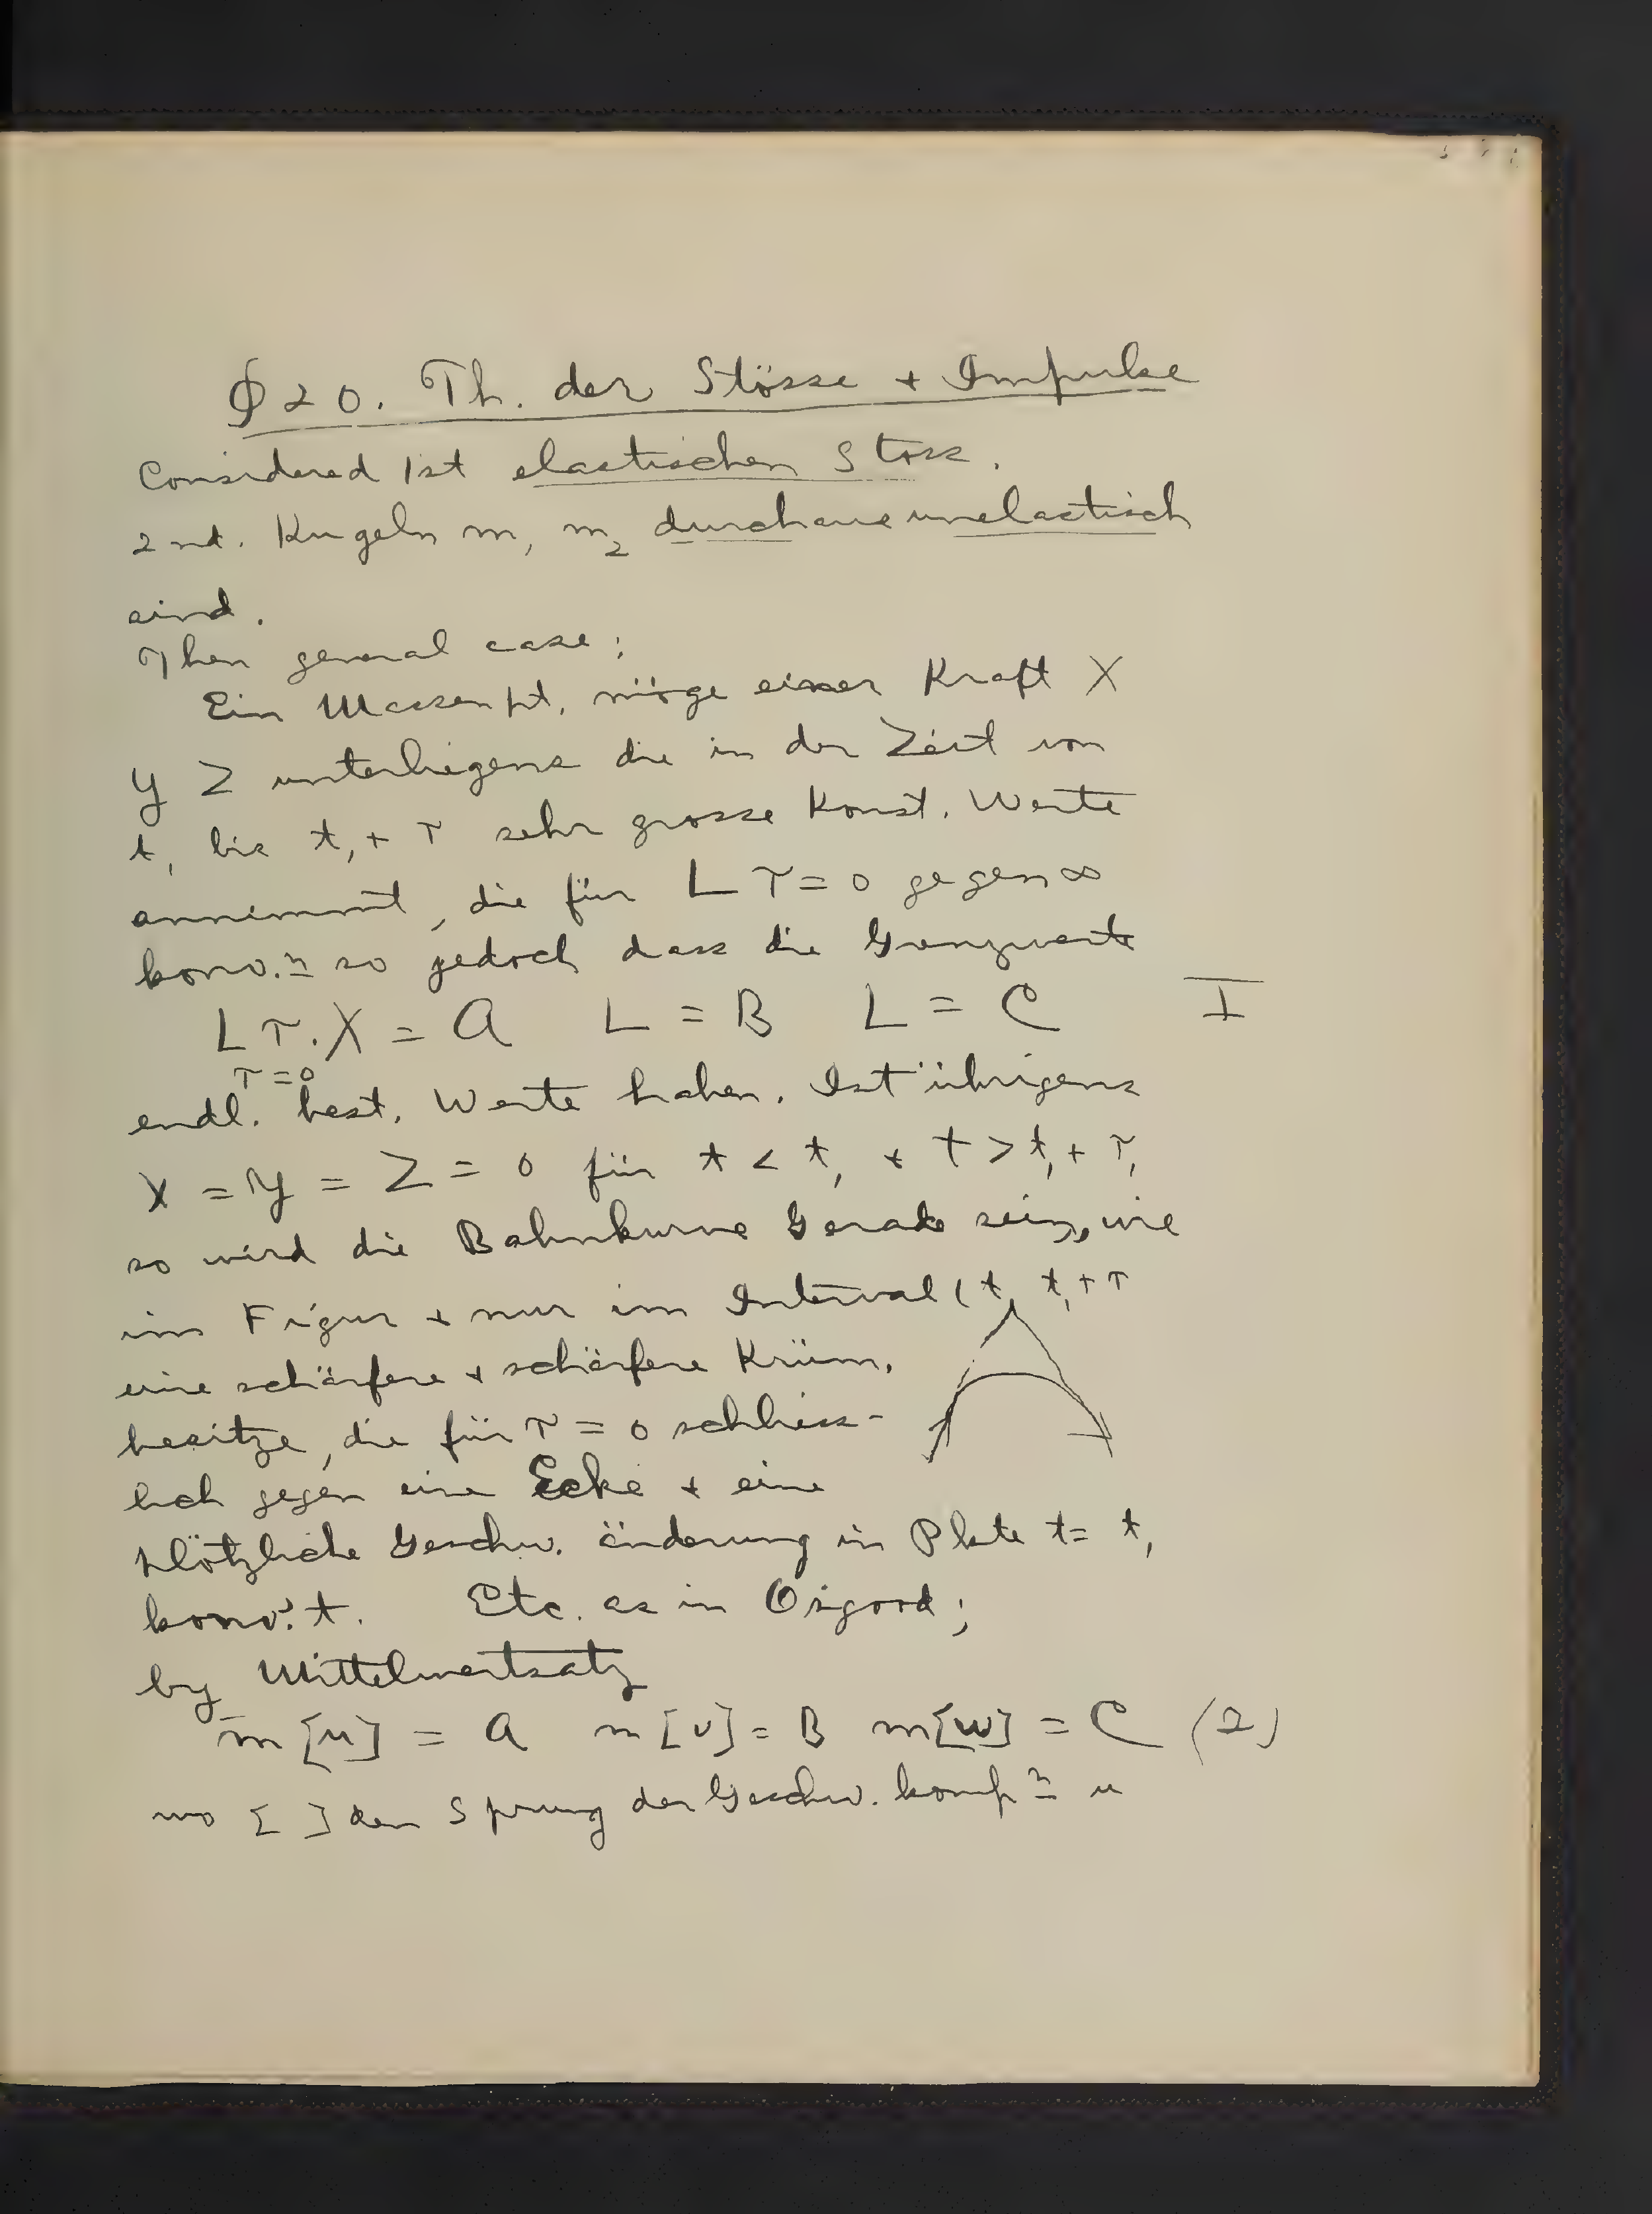 §20. Th. der Stösse + Impulse
Considered 1st elastischen Stoss.
2nd. Kugeln m₁ m₂ durchaus unelastisch
sind.
Then general case:
Ein Massenpt. möge einer Kraft X
Y Z unterliegens die in der Zeit von
t₁ bis t₁ + τ sehr grosse Konst. Werte
annimmt, die für L τ = 0 gegen ∞
konv.n so jedoch dass die Grenzwerte
L τ.X = A L = B L = C I
τ=0
endl. best. Werte haben. Ist übrigens
X = Y = Z = 0 für t < t₁ + t > t₁ + τ,
so wird die Bahnkurve Gerade sein, wie
im Figur + nur im Interval (t₁ t₁ + τ
eine schärfere + schärfere Krüm.
besitze, die für τ = 0 schliess-
lich gegen eine Ecke + eine
plötzliche Geschw. änderung in Pkte t = t₁
konv.t. Etc. as in Osgood;
by Mittelwertsatz
m [u] = A m [v] = B m[w] = C (2)
wo [ ] den Sprung der Geschw. komp.n u